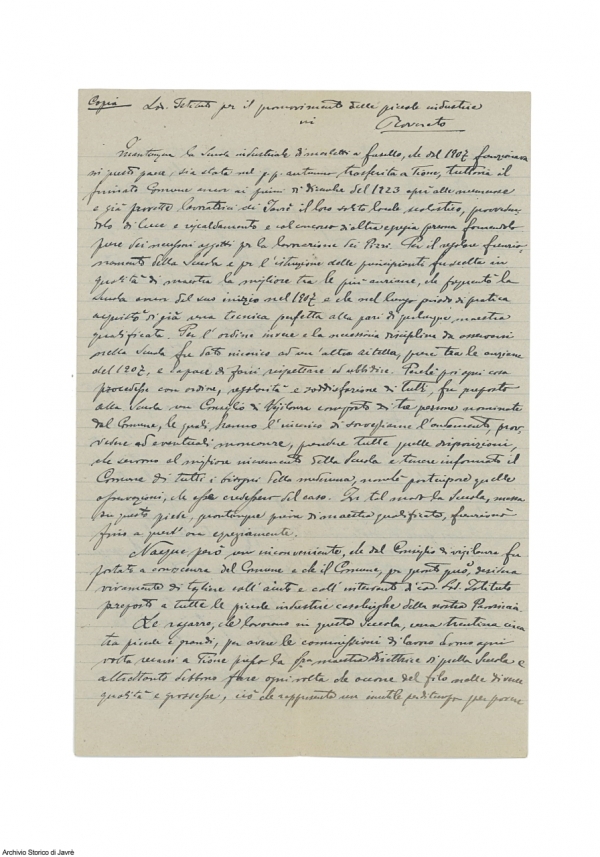 Copia Lod. Istituto per il promovimento delle piccole industrie
in
Rovereto
Quantunque la Scuola industriale di merletti a fusello, che dal 1907 funzionava
in questo paese, sia stata nel p.p. autunno trasferita a Tione, tuttavia il
firmato Comune ancor ai primi di dicembre del 1923 aprì alle numerose
e già provette lavoratrici di Javrè il loro solito locale scolastico, provveden-
dolo di luce e riscaldamento e col concorso di altra egregia persona fornendolo
pure dei necessari oggetti per la lavorazione dei Pizzi. Per il regolare funzio-
namento della Scuola e per l'istruzione delle principianti fu scelta in
qualità di maestra la migliore tra le più anziane, che frequentò la
Scuola ancor dal suo inizio nel 1907 e che nel lungo periodo di pratica
acquistò di già una tecnica perfetta alla pari di qualunque maestra
qualificata. Per l'ordine invece e la necessaria disciplina da osservarsi
nella Scuola fu dato incarico ad un'altra zitella, pure tra le anziane
del 1907, e capace di farsi rispettare ed ubbidire. Perchè poi ogni cosa
procedesse con ordine, regolarità e soddisfazione di tutti, fu preposto
alla Scuola un Consiglio di Vigilanza composto di tre persone nominate
dal Comune, le quali hanno l'incarico di sorvegliarne l'andamento, prov-
vedere ad eventuali mancanze, prendere tutte quelle disposizioni,
che servono al migliore incremento della Scuola e tenere informato il
Comune di tutti i bisogni della medesima, nonchè partecipare quelle
osservazioni, che esse credessero del caso. In tal modo la Scuola, messa
su questo piede, quantunque priva di maestra qualificata, funzionò
fino a quest'ora egregiamente.
Nacque però un inconveniente, che dal Consiglio di vigilanza fu
portato a conoscenza del Comune e che il Comune, per quanto può, desidera
vivamente di togliere coll'aiuto e coll'intervento di cod. Lod. Istituto
preposto a tutte le piccole industrie casalinghe della nostra Provincia.
Le ragazze, che lavorano in questa Scuola, una trentina circa
tra piccole e grandi, per avere le commissioni di lavoro devono ogni
volta recarsi a Tione presso la maestra direttrice di quella Scuola e
altrettanto debbono fare ogni volta che occorre del filo nelle diverse
qualità e grossezze, ciò che rappresenta un inutile perditempo per persone
Archivio Storico di Javrè